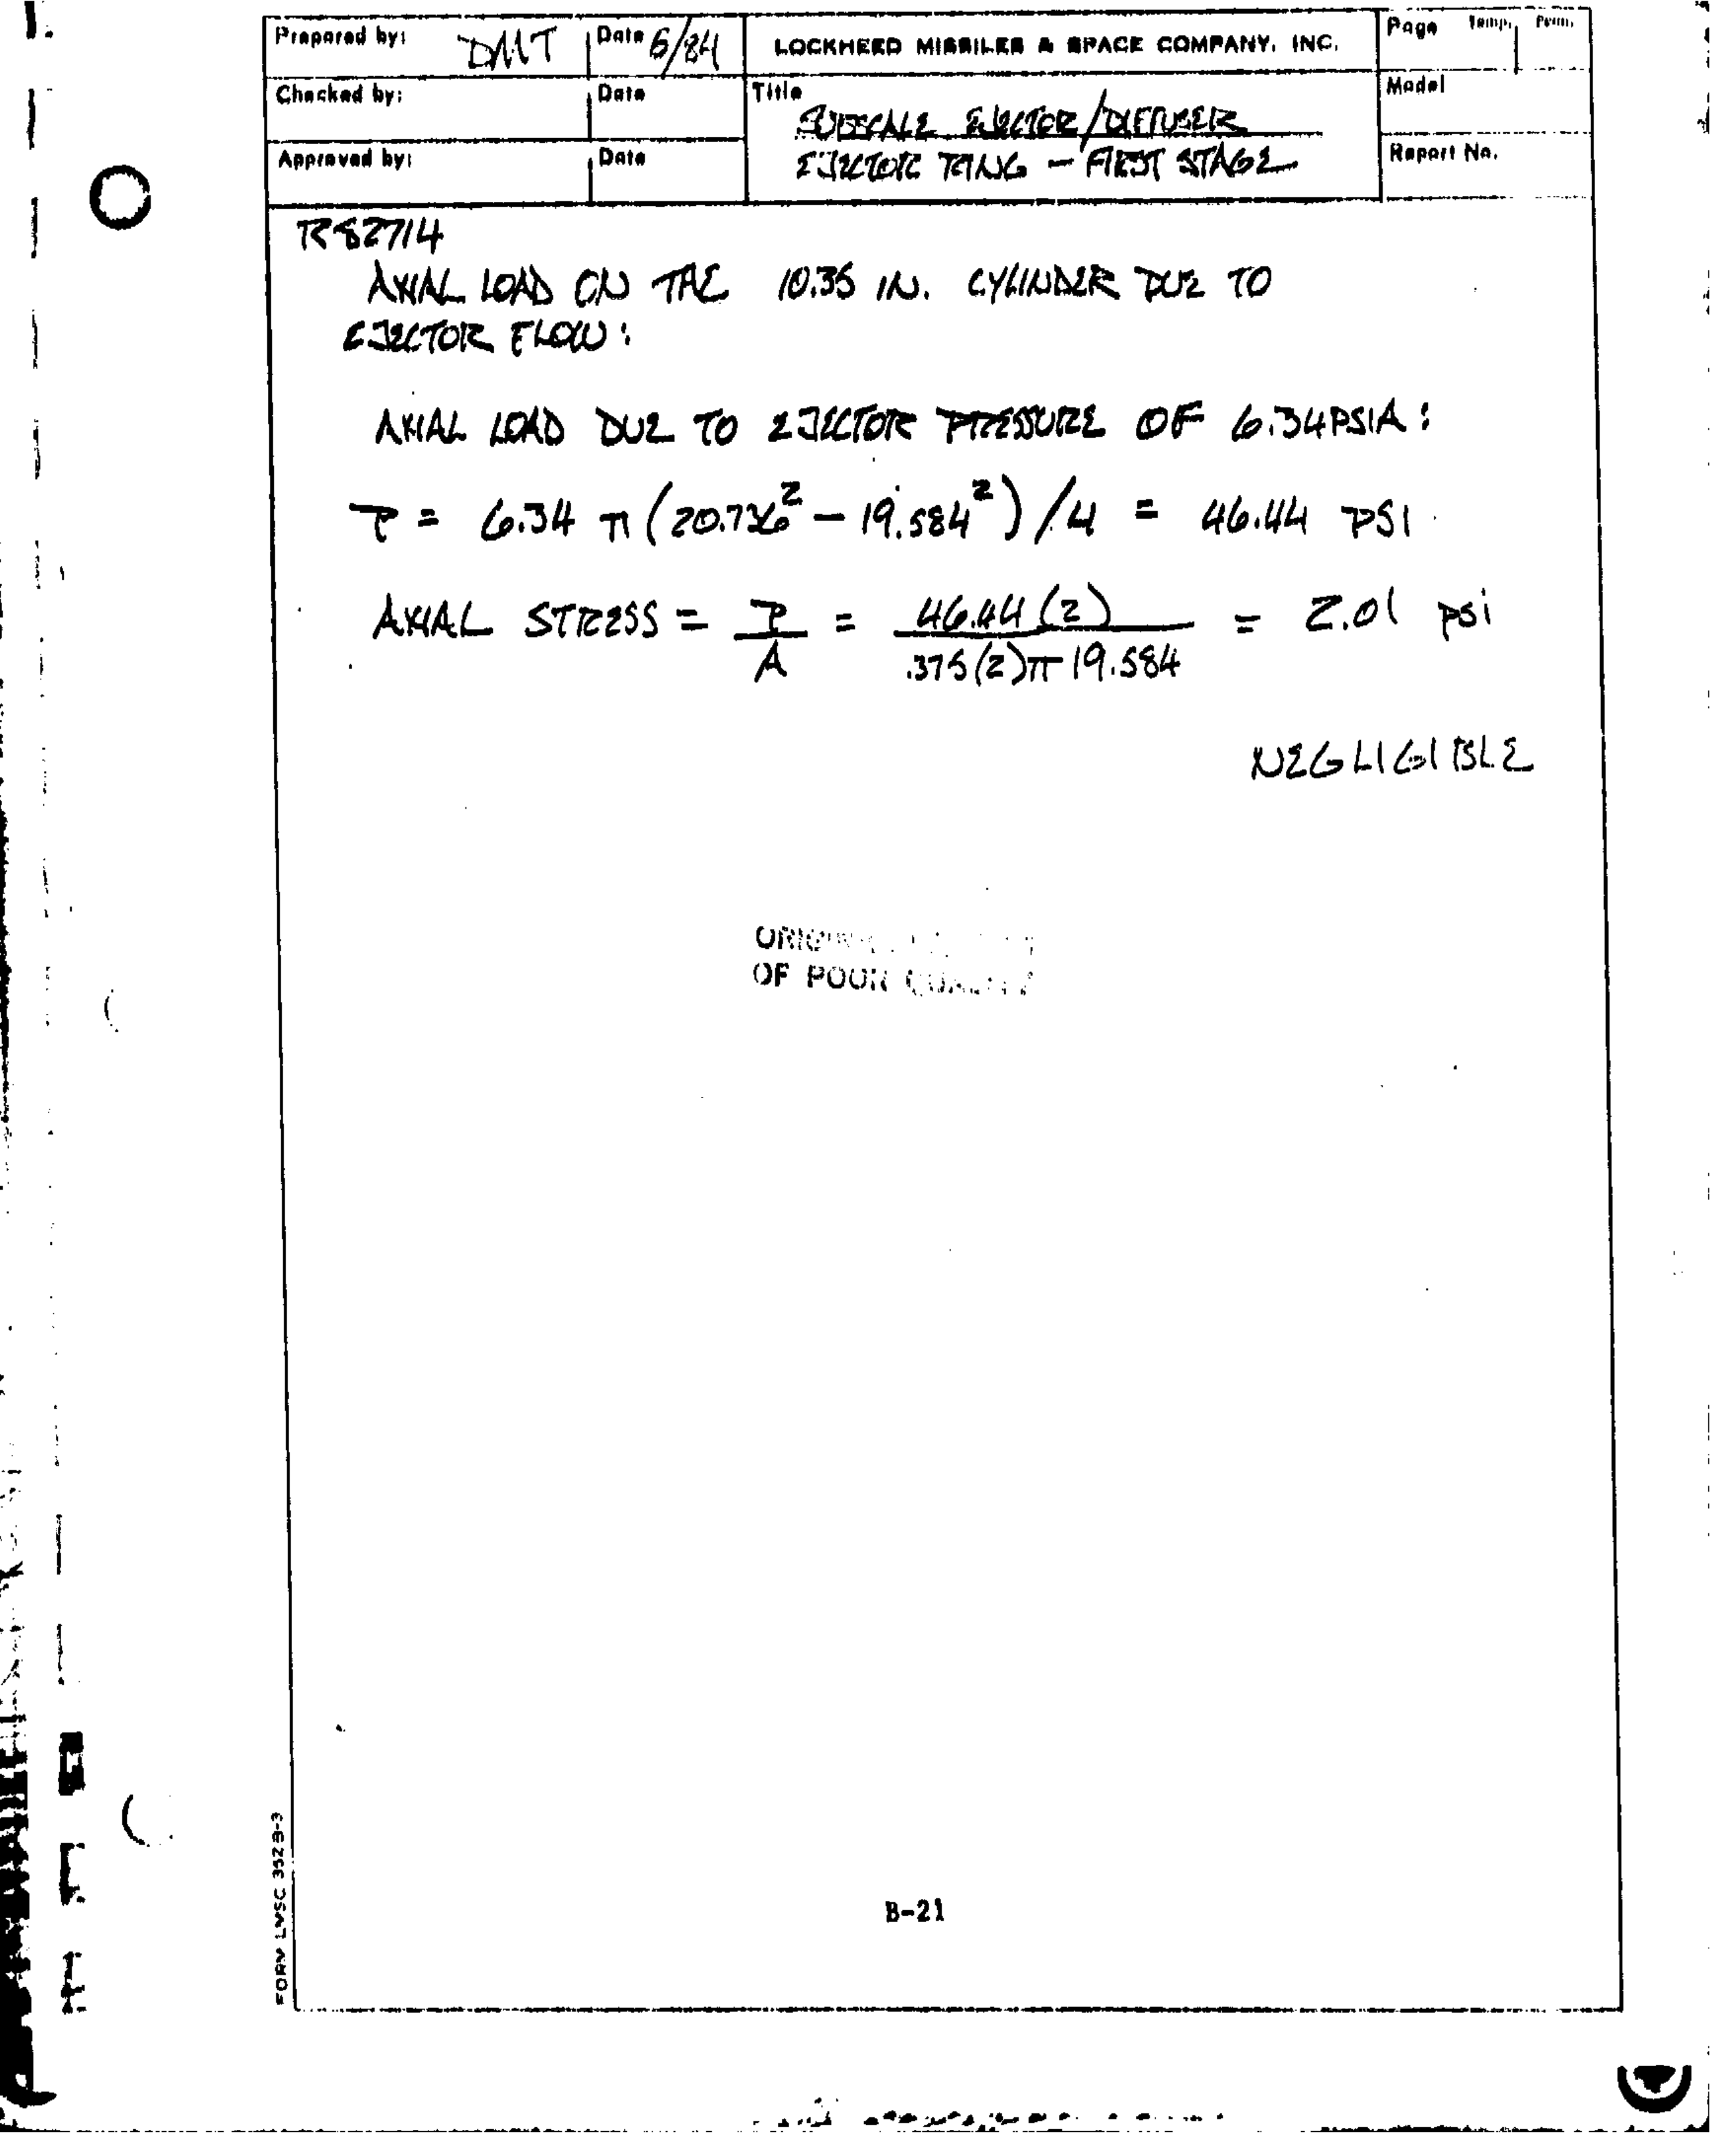 Prepared by: DMT Date 6/84 LOCKHEED MISSILES & SPACE COMPANY, INC. Page Temp. Perm.
Checked by: Date Title Model
SUBSCALE EJECTOR/DIFFUSER
Approved by: Date EJECTOR RING – FIRST STAGE Report No.
R82714
AXIAL LOAD ON THE 10.35 IN. CYLINDER DUE TO
EJECTOR FLOW:
AXIAL LOAD DUE TO EJECTOR PRESSURE OF 6.34 PSIA:
P = 6.34 π (20.736² – 19.584²) / 4 = 46.44 PSI
AXIAL STRESS = P/A = 46.44(2) / .375(2)π 19.584 = 2.01 psi
NEGLIGIBLE
ORIGINAL
OF POOR QUALITY
B-21
FORM LMSC 352B-3